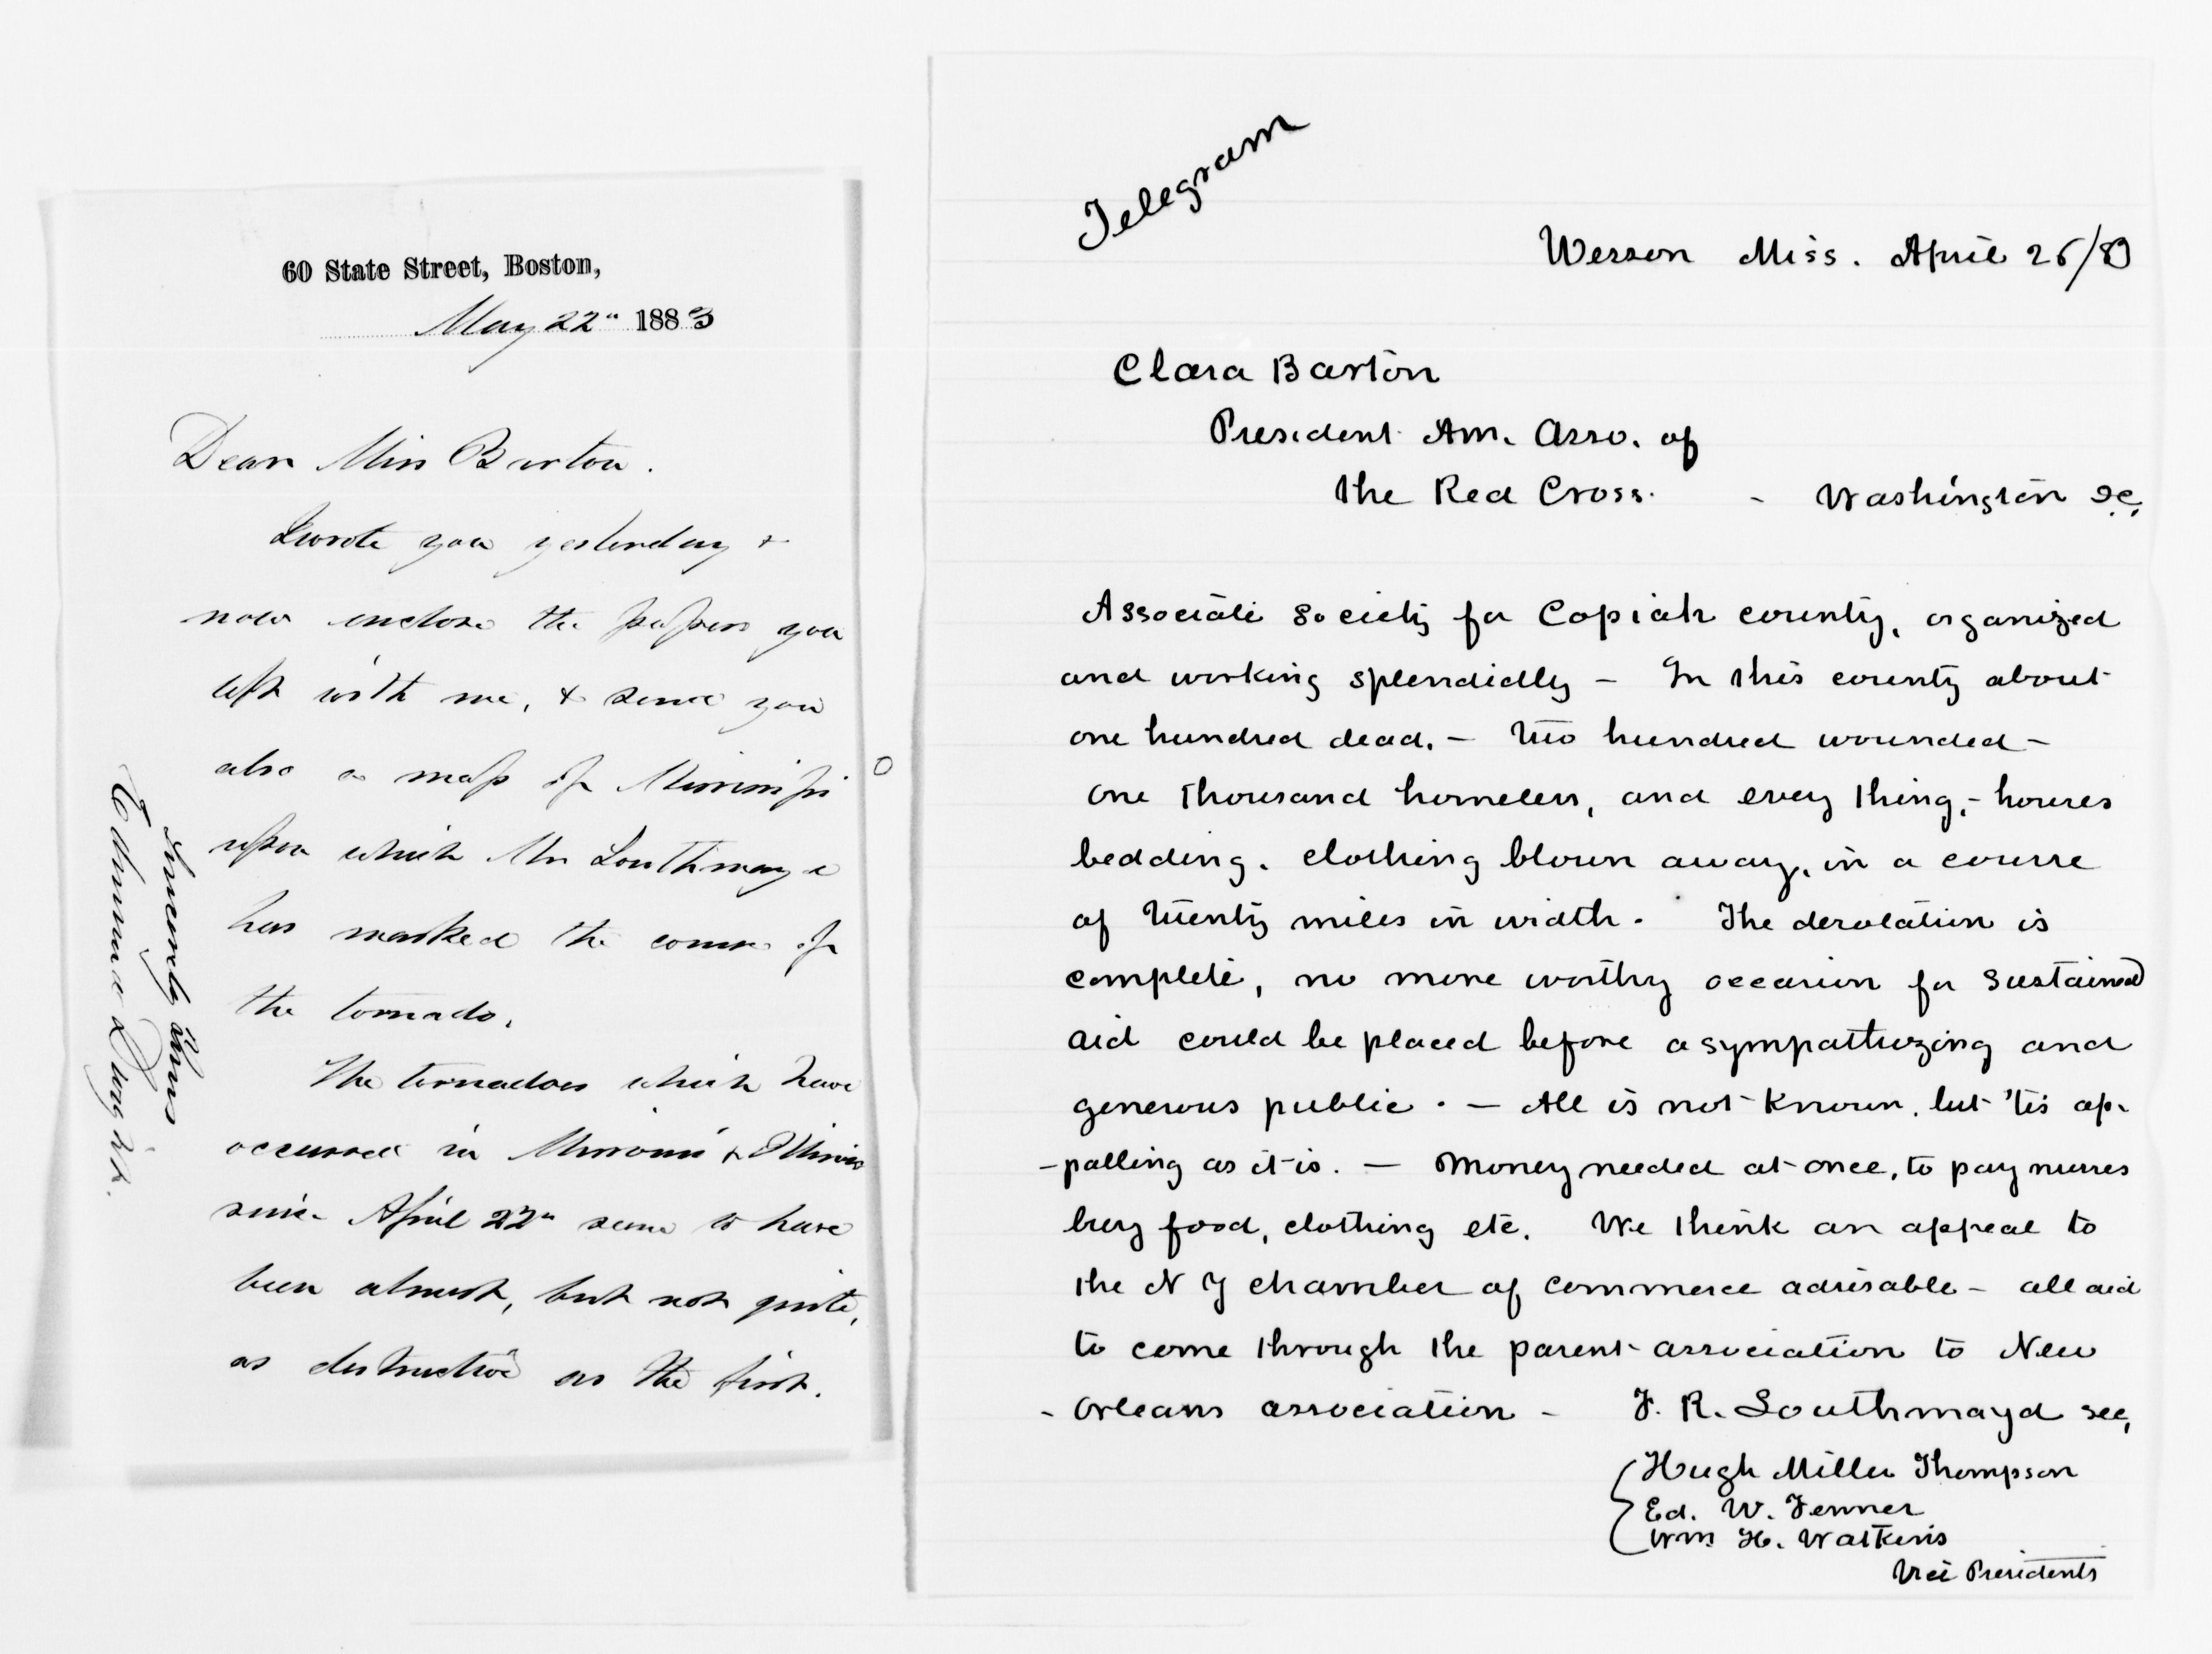 60 State Street, Boston,
May 22" 1883
Dear Miss Barton.
I wrote you yesterday &
now enclose the papers you
left with me, & send you
also a map of Mississippi
upon which Mr Southmayd
has marked the course of
the tornado.
The tornadoes which have
occurred in Missouri & Illinois
since April 22" seem to have
been almost, but not quite,
as destructive as the first.
Sincerely Yours
Edmund Dwight.
Telegram
Wesson Miss. April 26/83
Clara Barton
President Am. Asso. of
the Red Cross. - Washington DC.
Associate Society for Copiah county, organized
and working splendidly – In this county about
one hundred dead. – two hundred wounded –
one thousand homeless, and every thing, - houses
bedding. clothing blown away, in a course
of twenty miles in width. The desolation is
complete, no more worthy occasion for sustained
aid could be placed before a sympathizing and
generous public. – All is not known, but 'tis ap-
-palling as it is. – Money needed at once, to pay nurses
buy food, clothing etc. We think an appeal to
the N Y chamber of commerce advisable – all aid
to come through the parent association to New
- Orleans association - F. R. Southmayd sec,
Hugh Miller Thompson
Ed. W. Fenner
Wm H. Watkins
Vice Presidents